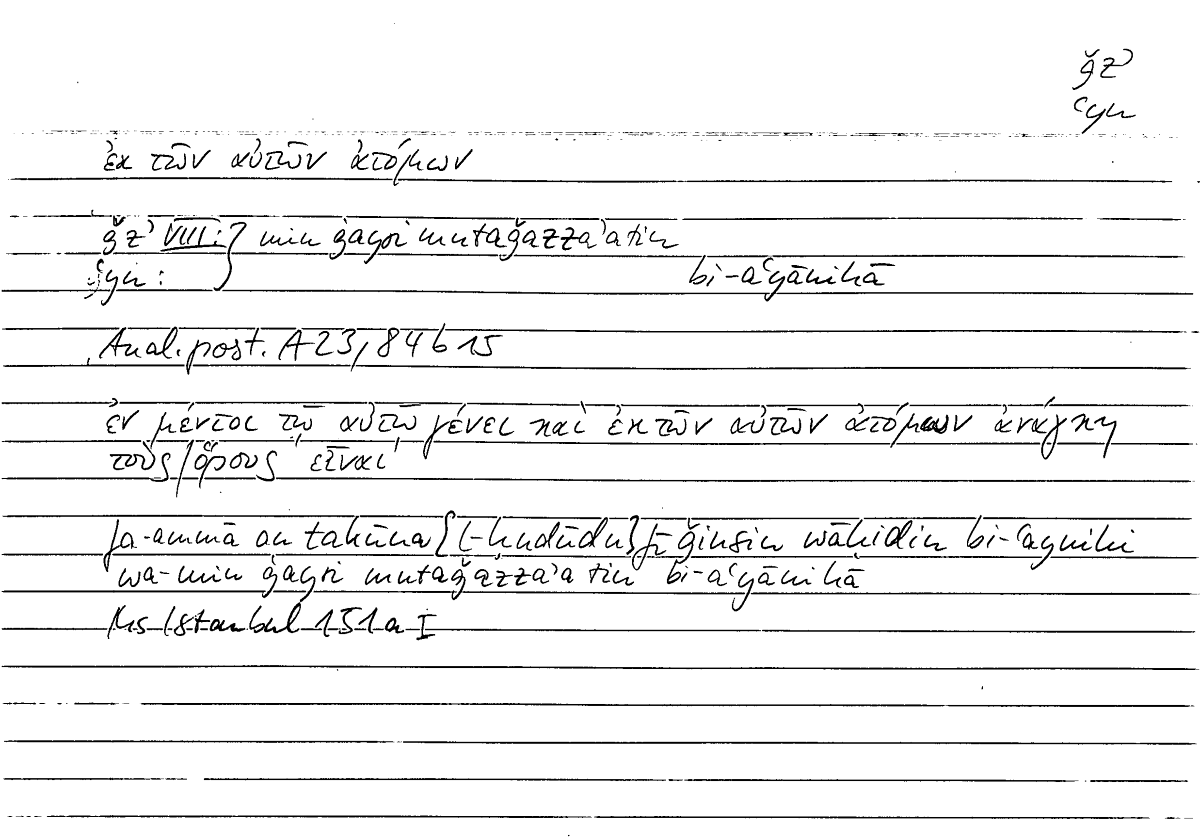 ǧzʾ
ʿyn
ἐκ τῶν αὐτῶν ἀτόμων
ǧzʾ VIII: } min ġayri mutaǧazzaʾatin
ʿyn: bi-aʿyānihā
Anal. post. A 23, 84 b 15
ἐν μέντοι τῷ αὐτῷ γένει καὶ ἐκ τῶν αὐτῶν ἀτόμων ἀνάγκη
τοὺς / ὅρους εἶναι
fa-ammā an takūna [l-ḥudūdu] fī ǧinsin wāḥidin bi-ʿaynihi
wa-min ġayri mutaǧazzaʾatin bi-aʿyānihā
Ms Istanbul 151 a I